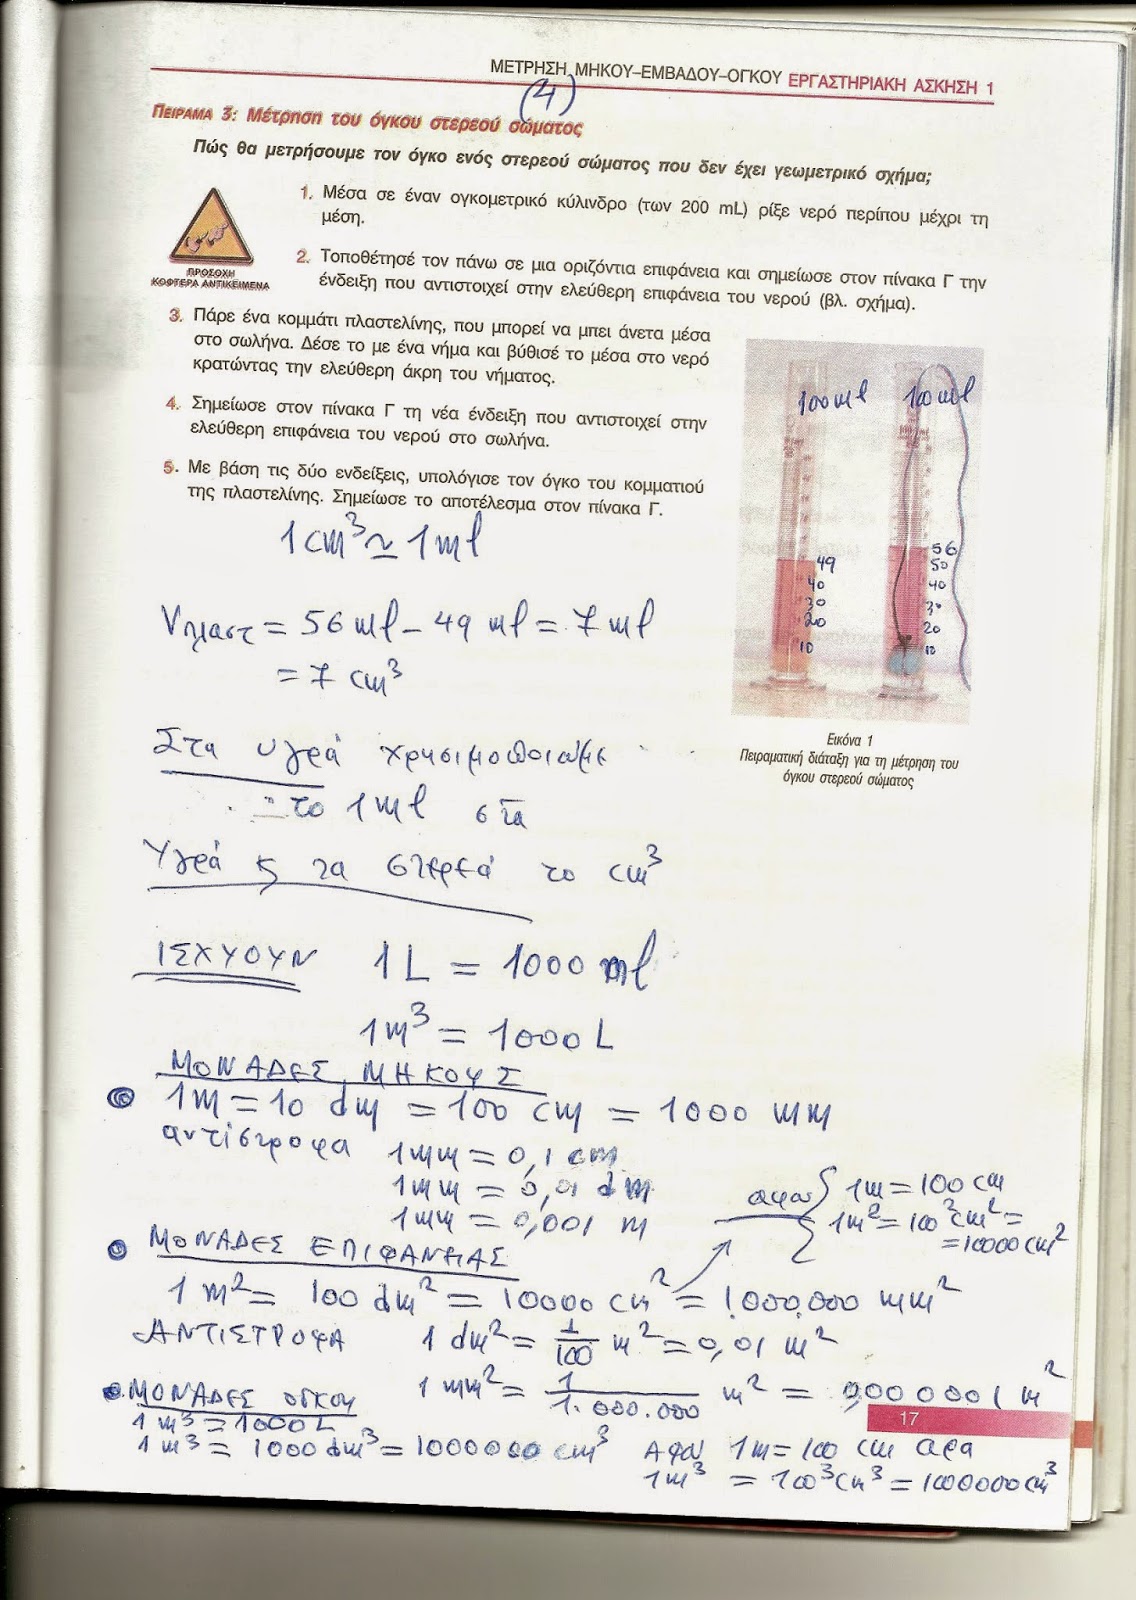 ΜΕΤΡΗΣΗ ΜΗΚΟΥ–ΕΜΒΑΔΟΥ–ΟΓΚΟΥ ΕΡΓΑΣΤΗΡΙΑΚΗ ΑΣΚΗΣΗ 1
(4)
ΠΕΙΡΑΜΑ 3: Μέτρηση του όγκου στερεού σώματος
Πώς θα μετρήσουμε τον όγκο ενός στερεού σώματος που δεν έχει γεωμετρικό σχήμα;
ΠΡΟΣΟΧΗ
ΚΟΦΤΕΡΑ ΑΝΤΙΚΕΙΜΕΝΑ
1. Μέσα σε έναν ογκομετρικό κύλινδρο (των 200 mL) ρίξε νερό περίπου μέχρι τη
μέση.
2. Τοποθέτησέ τον πάνω σε μια οριζόντια επιφάνεια και σημείωσε στον πίνακα Γ την
ένδειξη που αντιστοιχεί στην ελεύθερη επιφάνεια του νερού (βλ. σχήμα).
3. Πάρε ένα κομμάτι πλαστελίνης, που μπορεί να μπει άνετα μέσα
στο σωλήνα. Δέσε το με ένα νήμα και βύθισέ το μέσα στο νερό
κρατώντας την ελεύθερη άκρη του νήματος.
4. Σημείωσε στον πίνακα Γ τη νέα ένδειξη που αντιστοιχεί στην
ελεύθερη επιφάνεια του νερού στο σωλήνα.
5. Με βάση τις δύο ενδείξεις, υπολόγισε τον όγκο του κομματιού
της πλαστελίνης. Σημείωσε το αποτέλεσμα στον πίνακα Γ.
100 ml 100 ml
49
40
30
20
10
56
50
40
30
20
10
Εικόνα 1
Πειραματική διάταξη για τη μέτρηση του
όγκου στερεού σώματος
1 cm³ ≃ 1 ml
Vπλαστ = 56 ml – 49 ml = 7 ml
= 7 cm³
Στα υγρά χρησιμοποιούμε
το 1 ml στα
Υγρά ϗ τα στερεά το cm³
ΙΣΧΥΟΥΝ 1 L = 1000 ml
1 m³ = 1000 L
ΜΟΝΑΔΕΣ ΜΗΚΟΥΣ
1 m = 10 dm = 100 cm = 1000 mm
αντίστροφα 1 mm = 0,1 cm
1 mm = 0,01 dm
1 mm = 0,001 m
αφου 1 m = 100 cm
1 m² = 100² cm² =
= 10000 cm²
ΜΟΝΑΔΕΣ ΕΠΙΦΑΝΕΙΑΣ
1 m² = 100 dm² = 10000 cm² = 1.000.000 mm²
ΑΝΤΙΣΤΡΟΦΑ 1 dm² = 1/100 m² = 0,01 m²
1 mm² = 1/1.000.000 m² = 0,000001 m²
ΜΟΝΑΔΕΣ ΟΓΚΟΥ
1 m³ = 1000 L
1 m³ = 1000 dm³ = 1000000 cm³ ΑΦΟΥ 1 m = 100 cm αρα
1 m³ = 100³ cm³ = 1000000 cm³
17